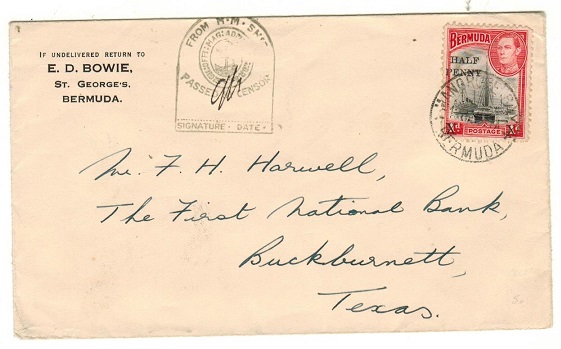 IF UNDELIVERED RETURN TO
E. D. BOWIE,
ST. GEORGE'S,
BERMUDA.
FROM H.M. SHIP
PASSED CENSOR
SIGNATURE · DATE ·
BERMUDA
HALF
PENNY
POSTAGE
BERMUDA
Mr. F. H. Harwell,
The First National Bank,
Buckburnett,
Texas.